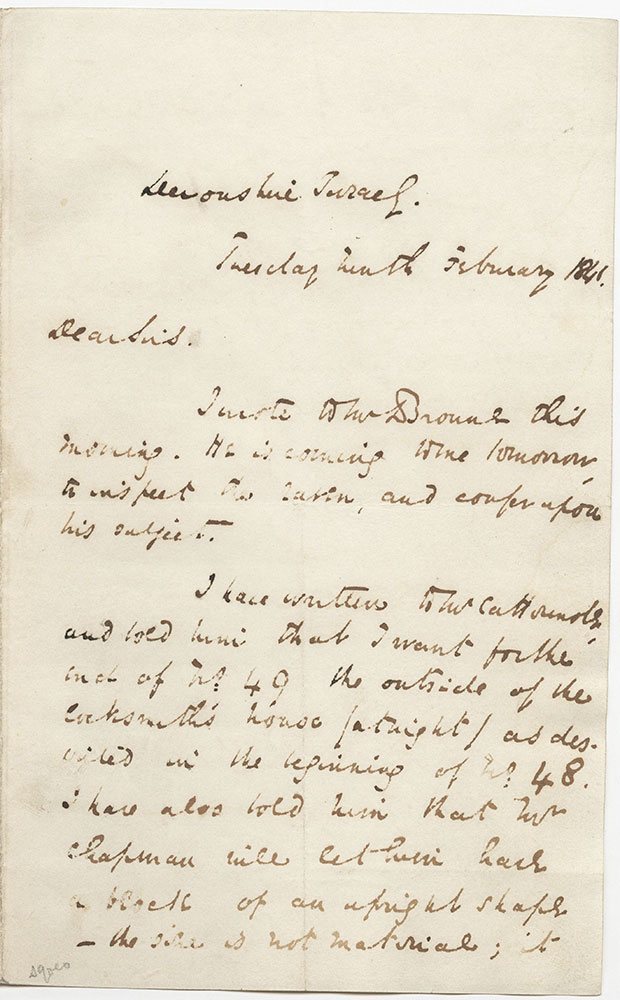 Devonshire Terrace.
Tuesday Ninth February 1841.
Dear Sirs.
I wrote to Mr Browne this
morning. He is coming to me tomorrow,
to inspect the raven, and confer upon
his subject.
I have written to Mr Cattermole,
and told him that I want for the
end of No. 49 the outside of the
locksmith's house (at night) as des-
cribed in the beginning of No. 48.
I have also told him that Mr
Chapman will let him have
a block of an upright shape
– the size is not material; it